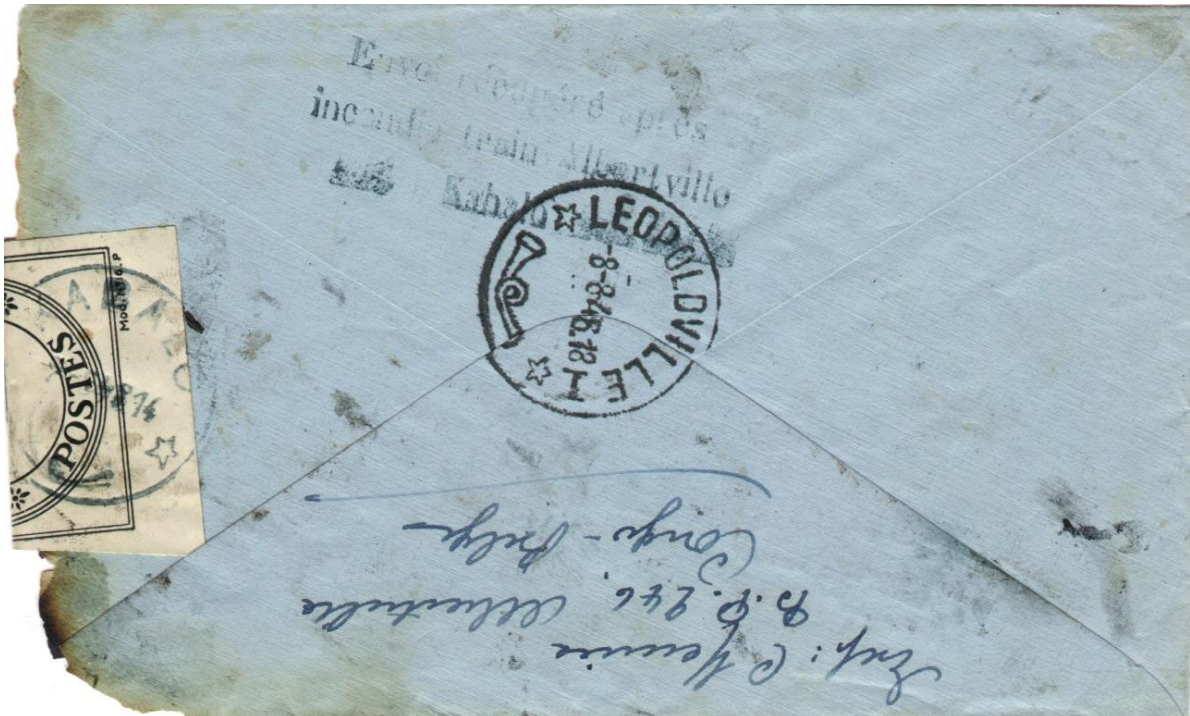 Envoi récupéré après
incendie train Albertville
Kabalo
LEOPOLDVILLE I
-8-8-46.18
Mod. N°16.P
POSTES
Exp:
B.P. 246, Albertville
Congo-Belge